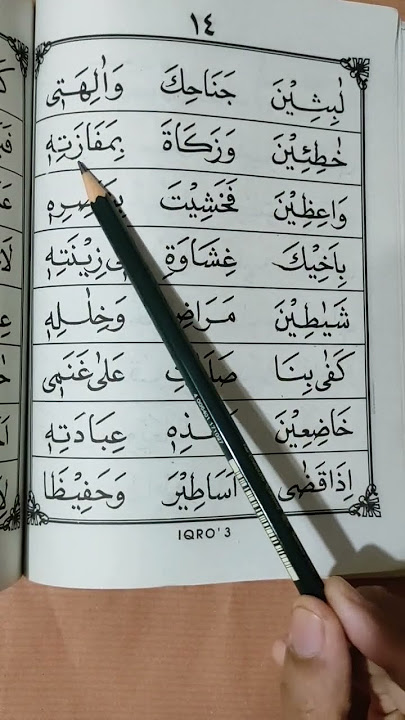 ١٤
لٰبِثِيْنَ جَنَاحِكَ وَاٰلِهَتِىْ
خٰطِئِيْنَ وَزَكَاةَ بِمَفَازَتِهٖ
وَاعِظِيْنَ فَخَشِيْتَ
بِاَخِيْكَ غِشَاوَةِ زِيْنَتِهٖ
شَيٰطِيْنَ وَخِلٰلِهٖ
كَفٰى بِنَا عَلٰى غَنَمِىْ
خَاضِعِيْنَ عِبَادَتِهٖ
اِذَا قَضٰى اَسَاطِيْرَ وَحَفِيْظًا
IQRO' 3